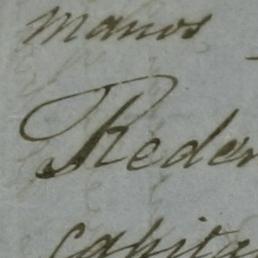 manos
Reden
capita